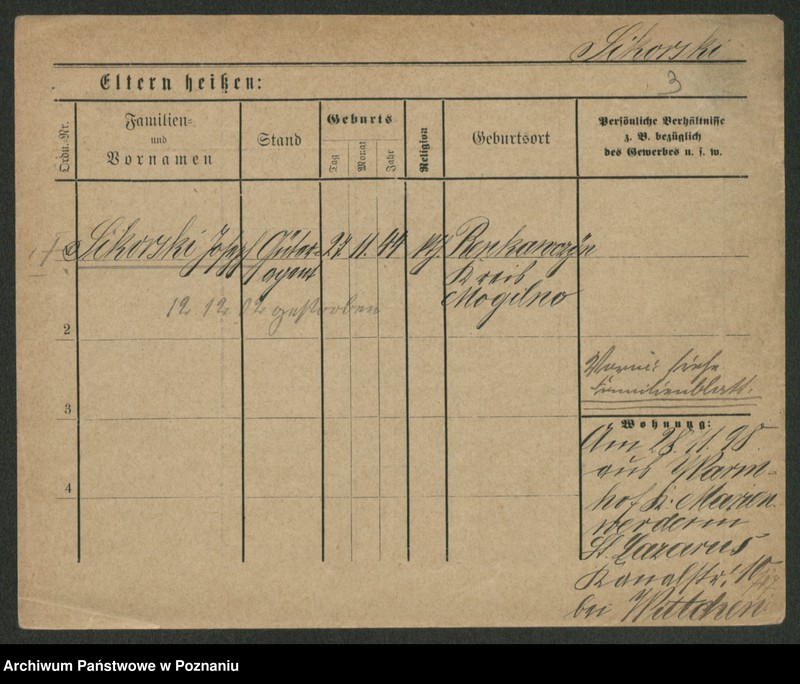 Sikorski
3
Eltern heißen:
Ordn.-Nr.
Familien-
und
Vornamen
Stand
Geburts
Tag
Monat
Jahr
Religion
Geburtsort
Persönliche Verhältnisse
z. B. bezüglich
des Gewerbes u. s. w.
Sikorski Josef Güter- 27 11. 44 kth
agent Kreis
Mogilno
12 12 02 gestorben
2
3
4
siehe
Familienblatt.
Wohnung:
Am 28.11.98.
aus Warm-
hof k. Marien
werder in
St. Lazarus
Kanalstr. 10
bei
Archiwum Państwowe w Poznaniu